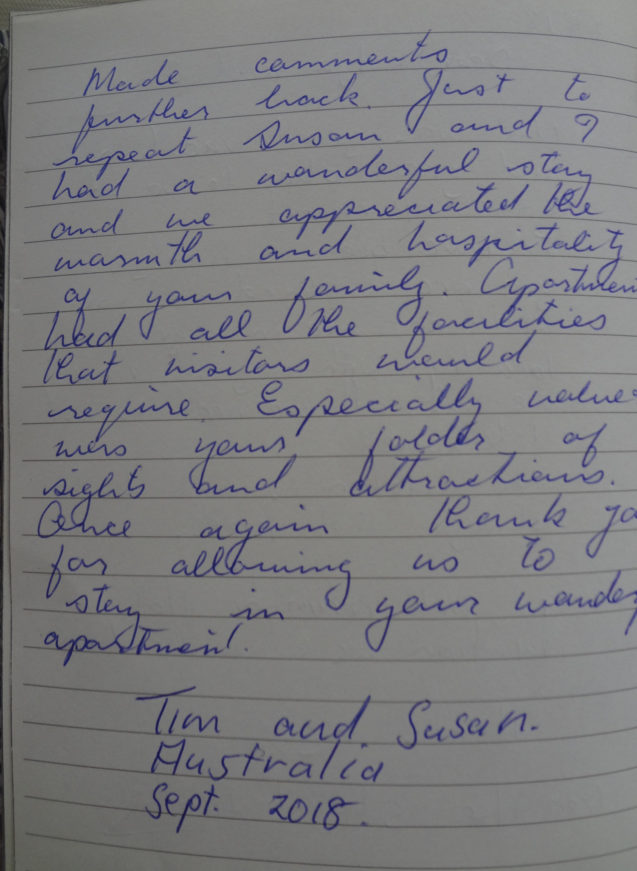 Made comments
further back. Just to
repeat Susan and I
had a wonderful stay
and we appreciated the
warmth and hospitality
of your family. Apartmen
had all the facilities
that visitors would
require. Especially value
was your folder of
sights and attractions.
Once again thank yo
for allowing us to
stay in your wonder
apartment.
Tim and Susan.
Australia
Sept. 2018.